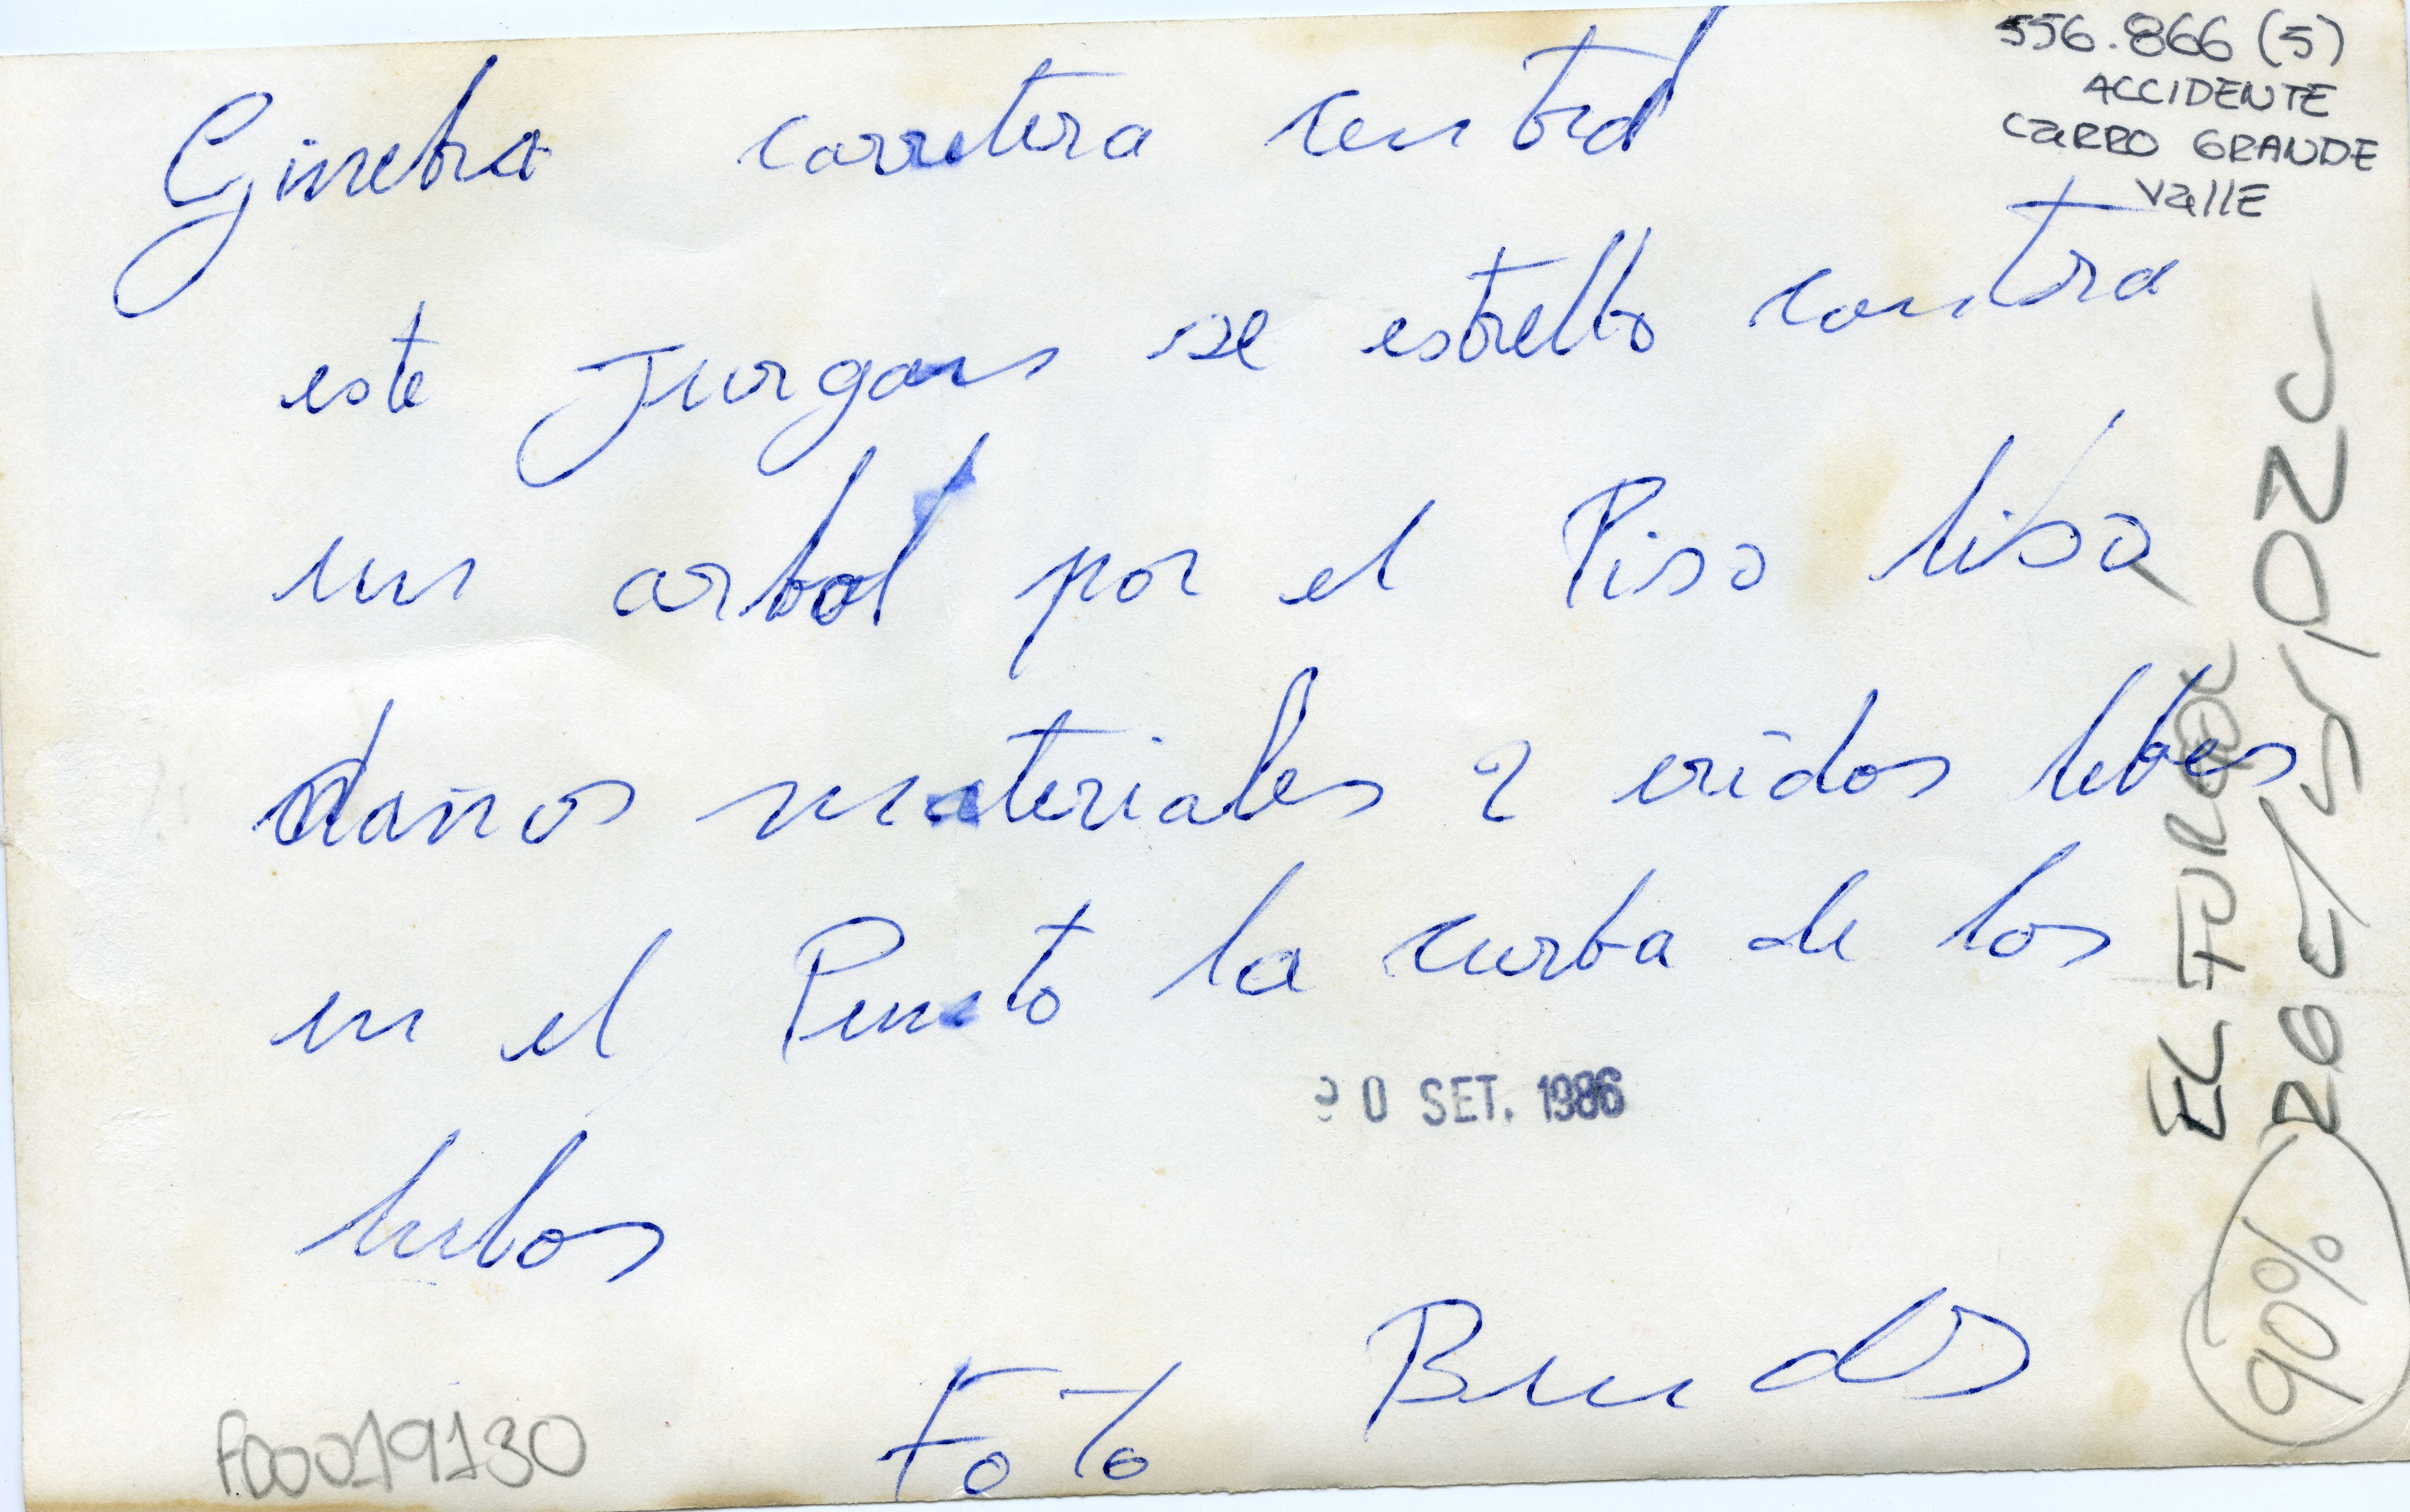 556.866 (5)
ACCIDENTE
CARRO GRANDE
VALLE
Ginebra carretera central
este Jurgans se estrello contra
un arbol por el Piso liso
daños materiales 2 eridos lebes
en el Punto la curba de los
lulos
20 SET. 1986
Foto
F00019130
EL
90%